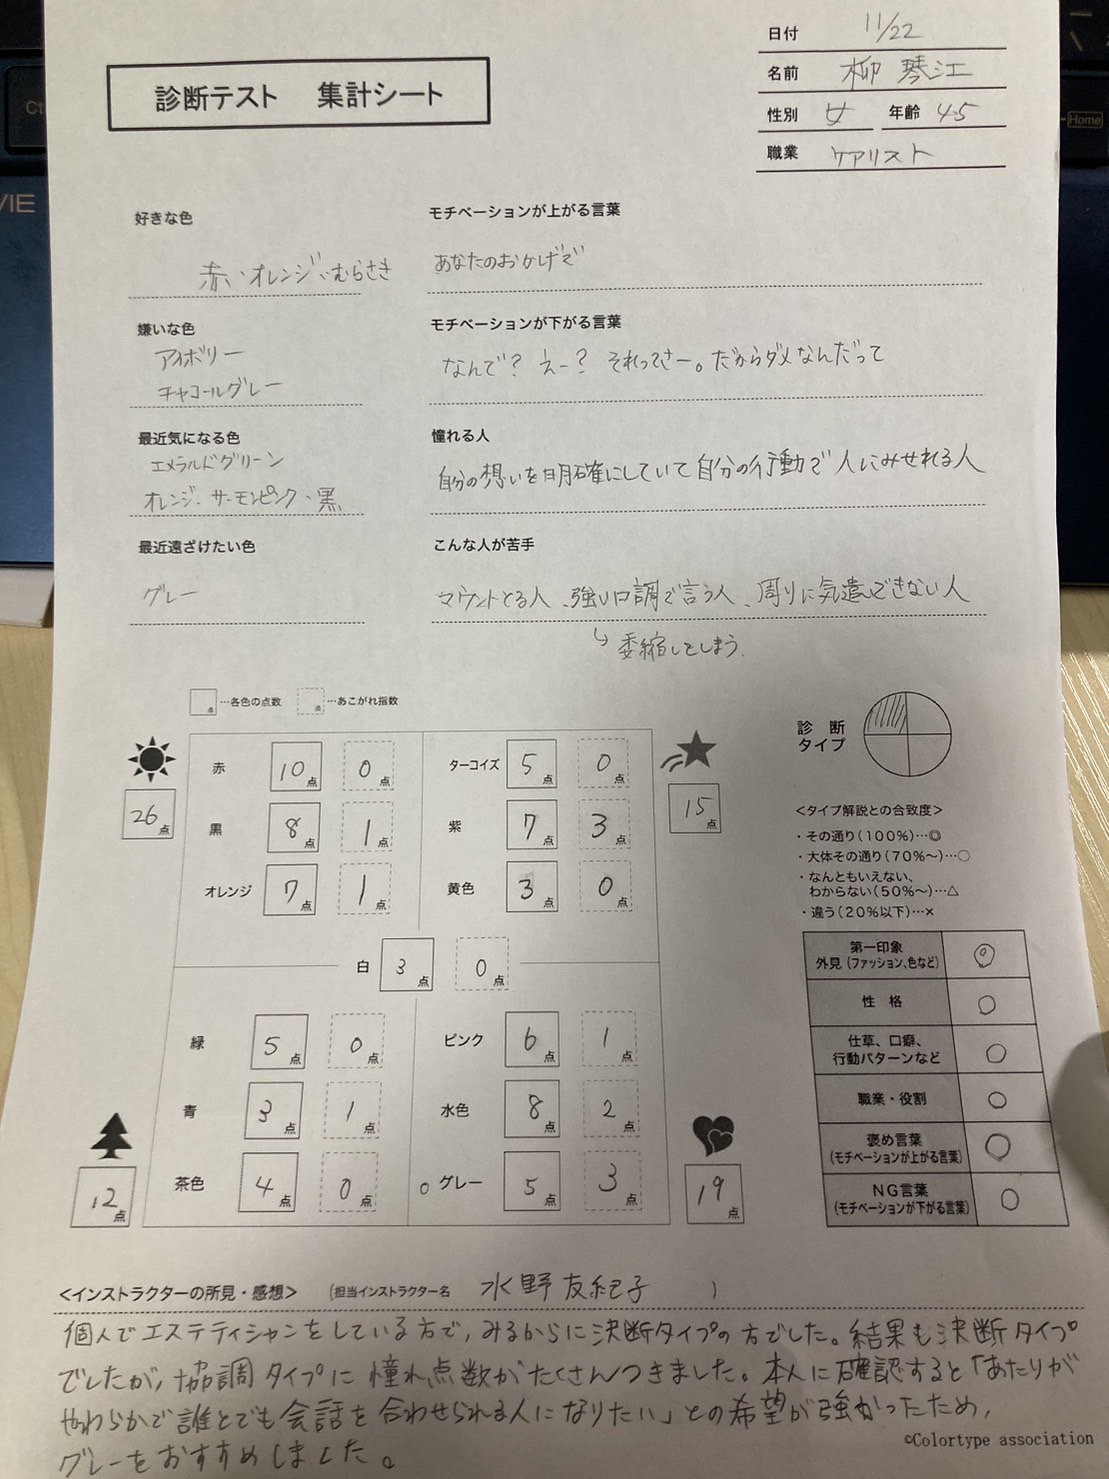 日付 11/22
診断テスト 集計シート
名前 柳 琴江
性別 女 年齢 45
職業 ケアリスト
Ct
VIE
Home
好きな色
赤、オレンジ、むらさき
モチベーションが上がる言葉
あなたのおかげで
嫌いな色
アイボリー
チャコールグレー
モチベーションが下がる言葉
なんで? えー? それってさー。だからダメなんだって
最近気になる色
エメラルドグリーン
オレンジ、サーモンピンク、黒
憧れる人
自分の想いを明確にしていて自分の行動で人にみせれる人
最近遠ざけたい色
グレー
こんな人が苦手
マウントとる人、強い口調で言う人、周りに気遣いできない人
↳ 委縮してしまう。
点 …各色の点数 点 …あこがれ指数
診断タイプ
26点
赤 10点 0点
黒 8点 1点
オレンジ 7点 1点
ターコイズ 5点 0点
紫 7点 3点
黄色 3点 0点
15点
白 3点 0点
緑 5点 0点
青 3点 1点
茶色 4点 0点
12点
ピンク 6点 1点
水色 8点 2点
○ グレー 5点 3点
19点
<タイプ解説との合致度>
・その通り(100%)…◎
・大体その通り(70%~)…○
・なんともいえない、
わからない(50%~)…△
・違う(20%以下)…×
第一印象
外見(ファッション、色など) ◎
性格 ○
仕草、口癖、
行動パターンなど ○
職業・役割 ○
褒め言葉
(モチベーションが上がる言葉) ○
NG言葉
(モチベーションが下がる言葉) ○
<インストラクターの所見・感想> (担当インストラクター名 水野友紀子 )
個人でエステティシャンをしている方で、みるからに決断タイプの方でした。結果も決断タイプ
でしたが、協調タイプに憧れ点数がたくさんつきました。本人に確認すると「あたりが
やわらかで誰とでも会話を合わせられる人になりたい」との希望が強かったため、
グレーをおすすめしました。
©Colortype association